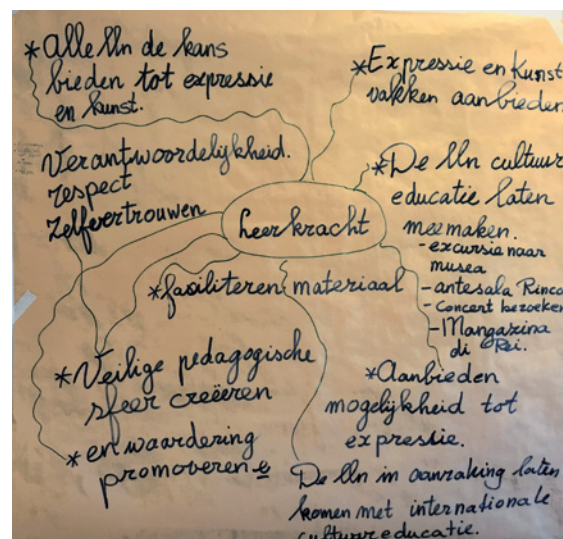 *Alle lln de kans
bieden tot expressie
en kunst.
*Expressie en Kunst
vakken aanbieden
Verantwoordelijkheid.
respect
Zelfvertrouwen
Leerkracht
*De lln cultuur
educatie laten
meemaken.
- excursie naar
musea
- antesala Rinco
- Concert bezoeken
- Mangazina
di Rei.
*faciliteren materiaal
*Veilige pedagogische
sfeer creëeren
* en waardering
promoveren e
*Aanbieden
mogelijkheid tot
expressie.
De lln in aanraking laten
komen met internationale
cultuureducatie.